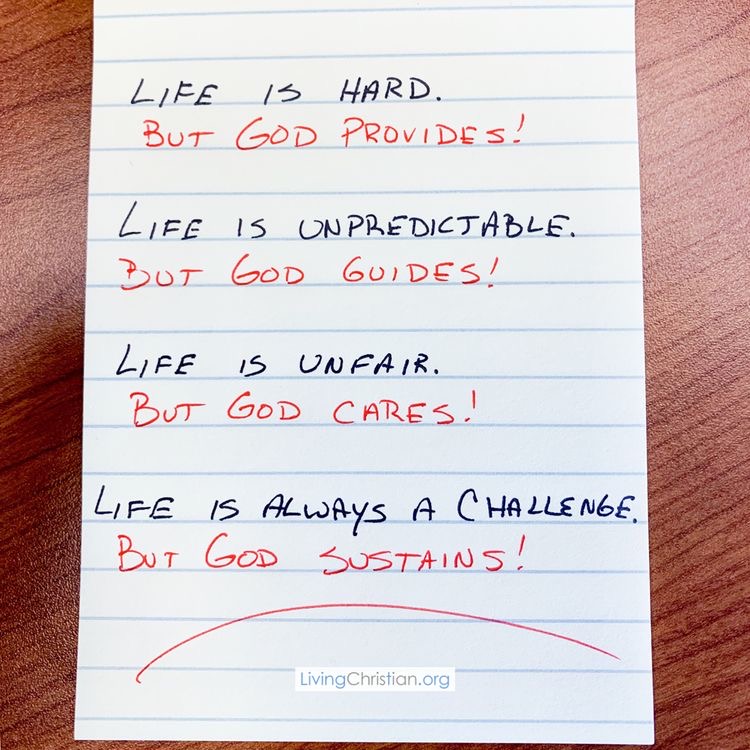 LIFE IS HARD.
BUT GOD PROVIDES!
LIFE IS UNPREDICTABLE.
BUT GOD GUIDES!
LIFE IS UNFAIR.
BUT GOD CARES!
LIFE IS ALWAYS A CHALLENGE.
BUT GOD SUSTAINS!
LivingChristian.org